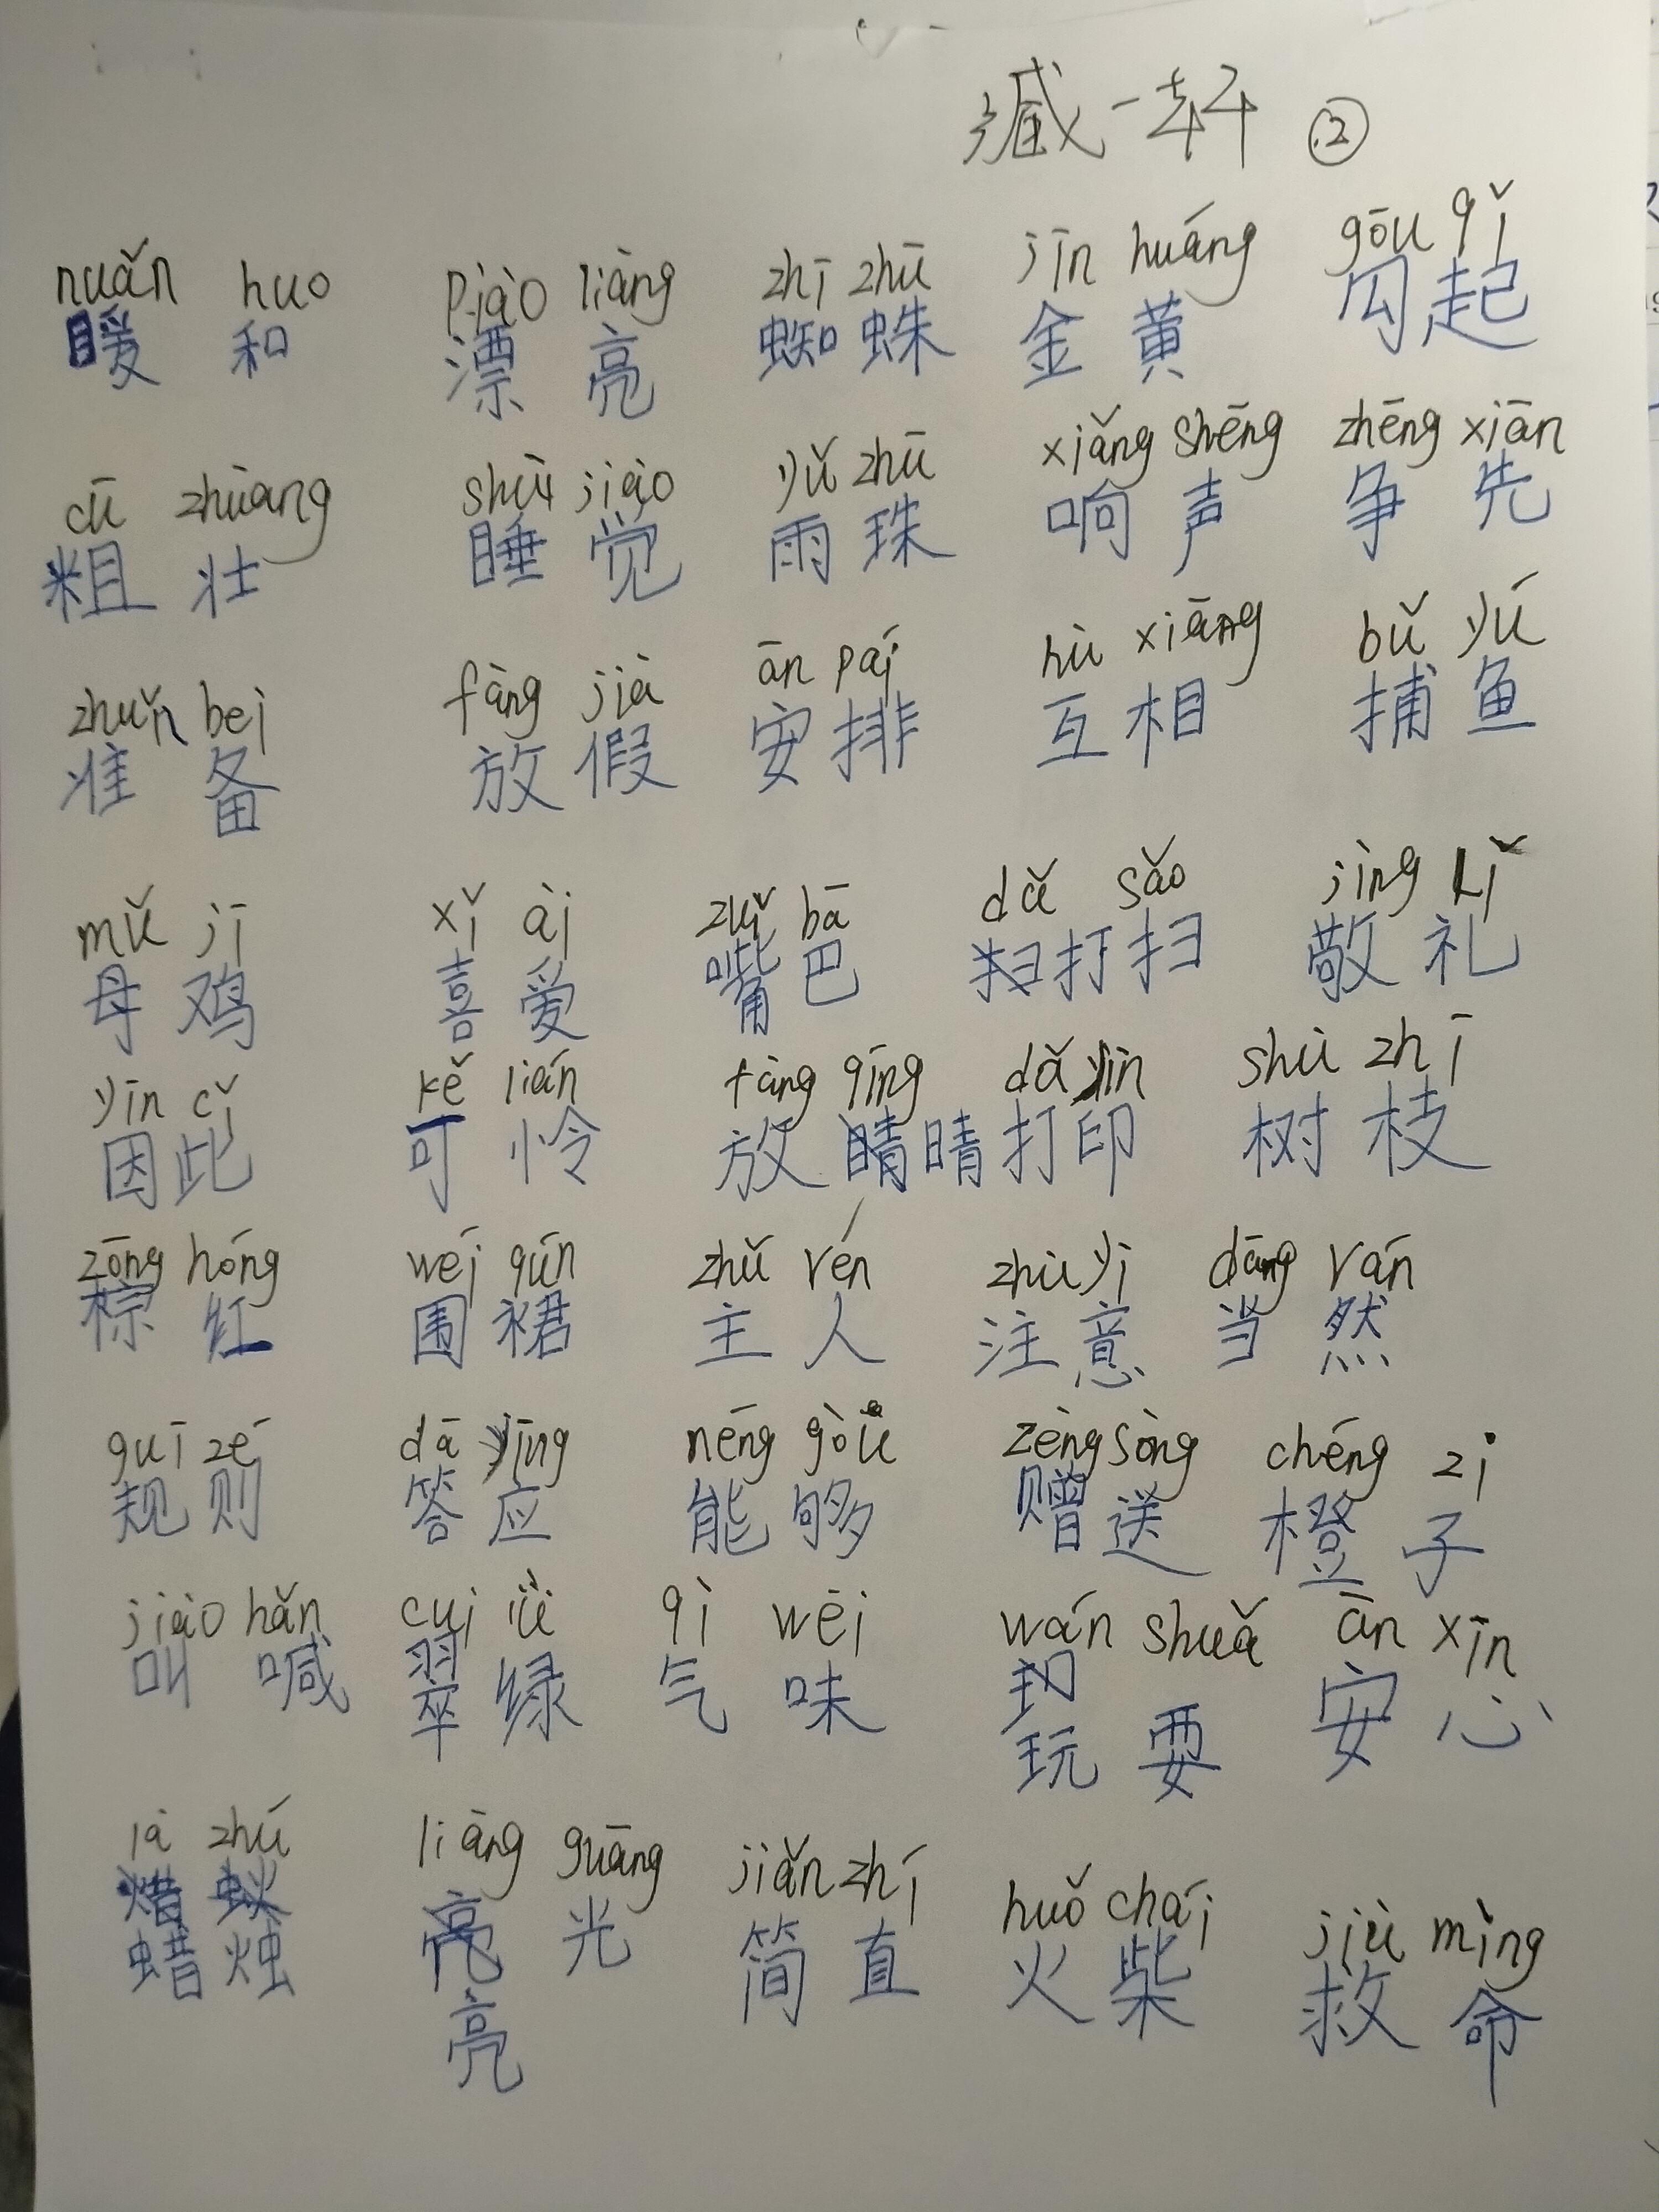 臧一轩 ②
nuǎn huo piào liàng zhī zhū jīn huáng gōu qǐ
暖 和 漂 亮 蜘 蛛 金 黄 勾 起
cū zhuàng shuì jiào yǔ zhū xiǎng shēng zhēng xiān
粗 壮 睡 觉 雨 珠 响 声 争 先
zhuǔn bei fàng jià ān pái hù xiāng bǔ yú
准 备 放 假 安 排 互 相 捕 鱼
mǔ jī xǐ ài zuǐ bā dǎ sǎo jìng lǐ
母 鸡 喜 爱 嘴 巴 打 扫 敬 礼
yīn cǐ kě lián fàng qíng dǎ yìn shù zhī
因 此 可 怜 放 晴 打 印 树 枝
zōng hóng wéi qún zhǔ rén zhù yì dāng rán
棕 红 围 裙 主 人 注 意 当 然
guī zé dā yīng néng gòu zèng sòng chéng zi
规 则 答 应 能 够 赠 送 橙 子
jiào hǎn cuì lǜ qì wèi wán shuǎ ān xīn
叫 喊 翠 绿 气 味 玩 耍 安 心
là zhú liàng guāng jiǎn zhí huǒ chái jiù mìng
蜡 烛 亮 光 简 直 火 柴 救 命